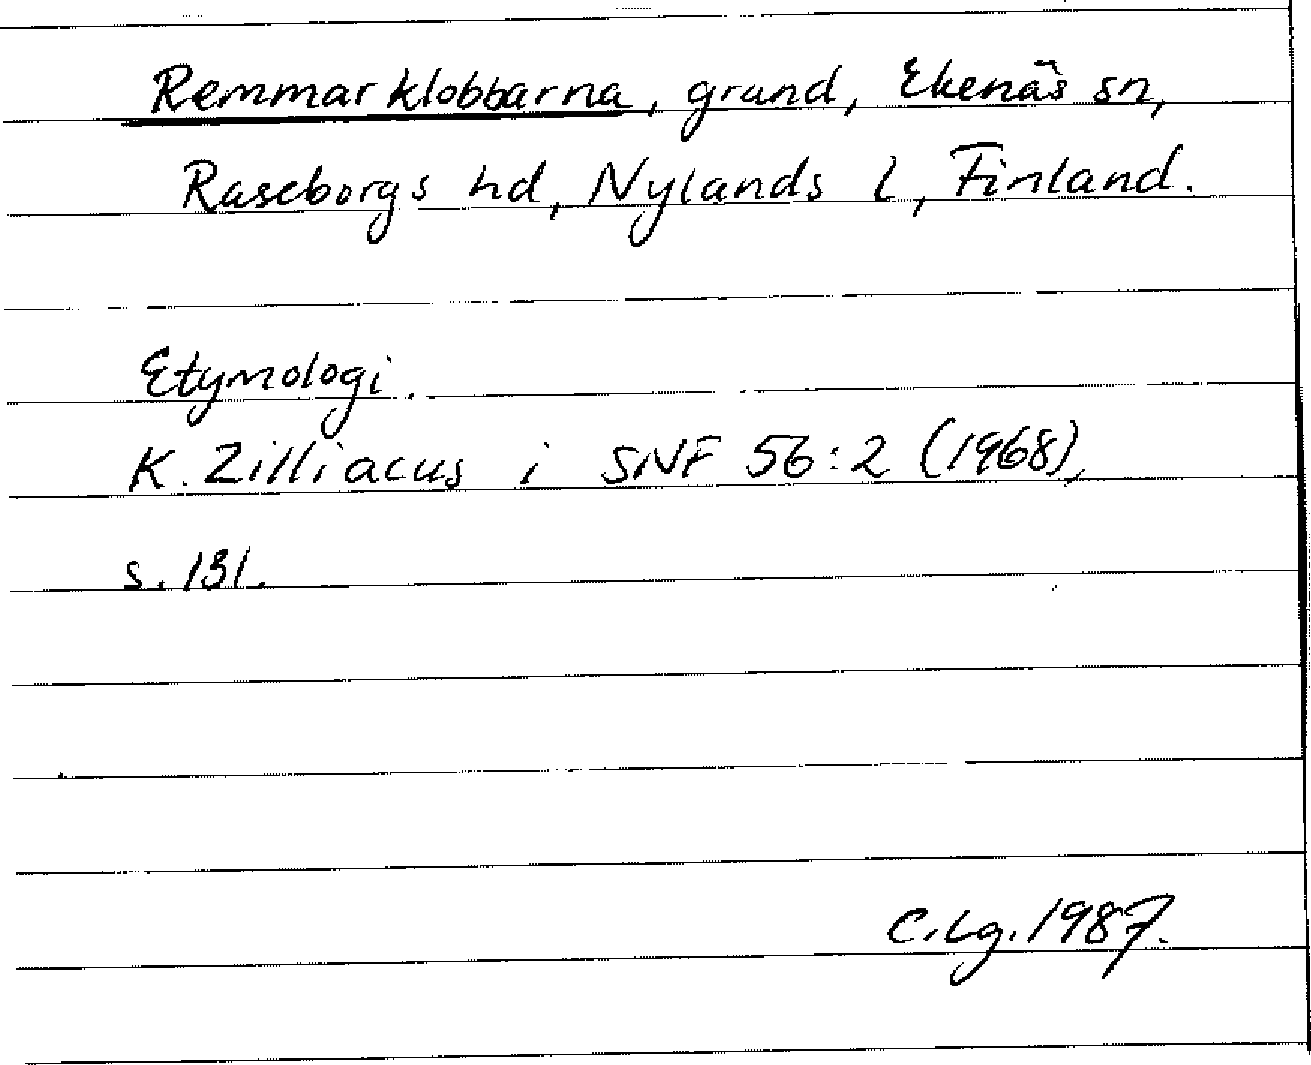 Remmarklobbarna, grund, Ekenäs sn,
Raseborgs hd, Nylands l, Finland.
Etymologi.
K. Zilliacus i SNF 56:2 (1968),
s. 131.
C.Lg. 1987.